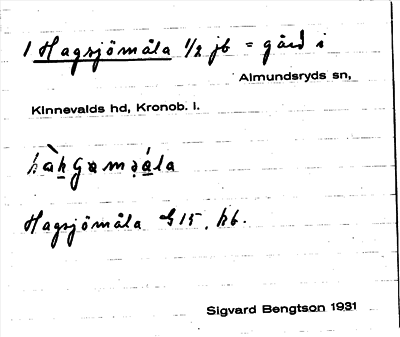 1 Hagsjömåla 1/2 jb = gård i
Almundsryds sn,
Kinnevalds hd, Kronob. l.
Hagsjömåla G 15, kb.
Sigvard Bengtson 1931